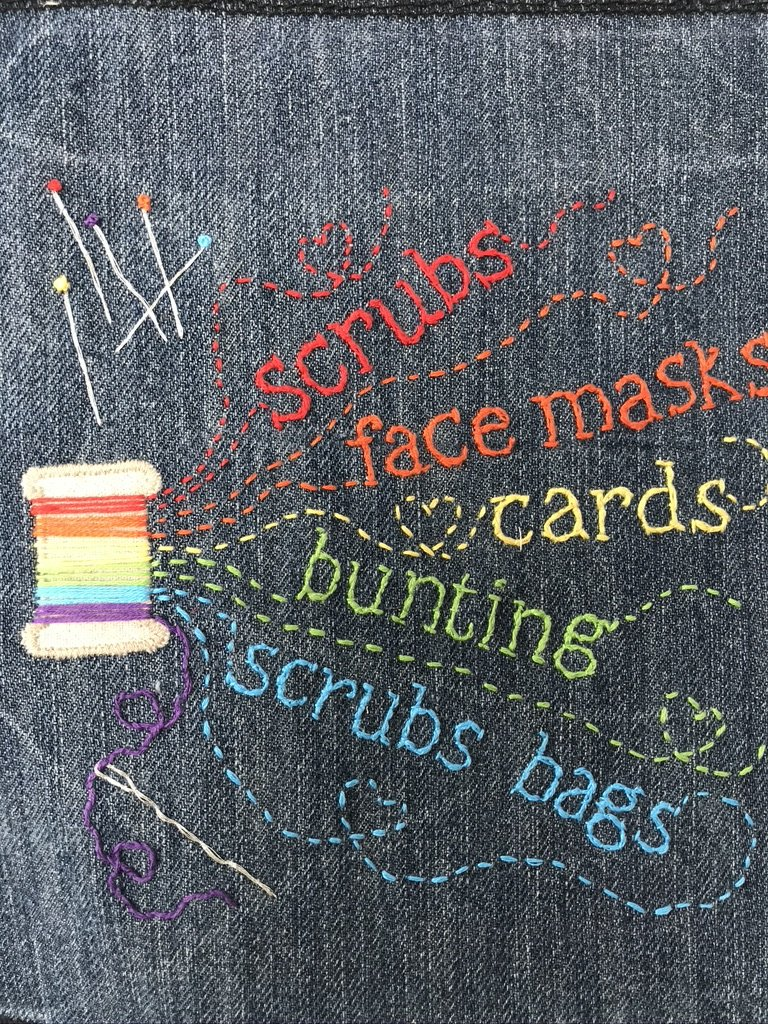 scrubs
face masks
cards
bunting
scrubs bags